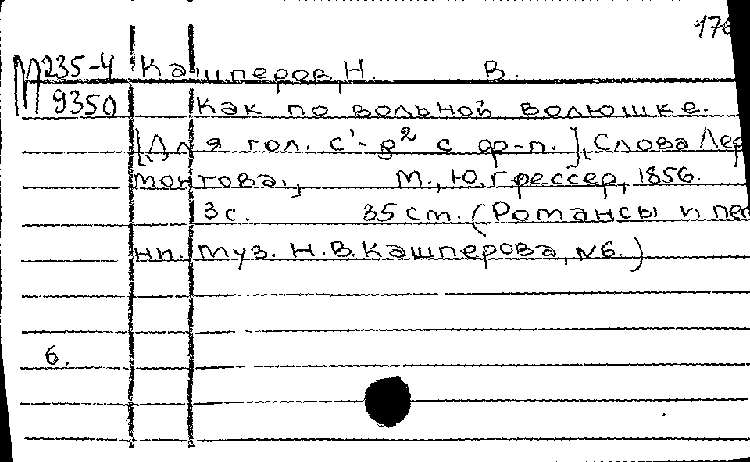 176
М 235-4 Кашперов, Н. В.
9350 Как по вольной волюшке.
[Для гол. c'-g² с ф-п.], Слова Лер
монтова., М., Ю. Грессер, 1856.
3 с. 35 cm. (Романсы и пес
ни. муз. Н. В. Кашперова, №6.)
б.